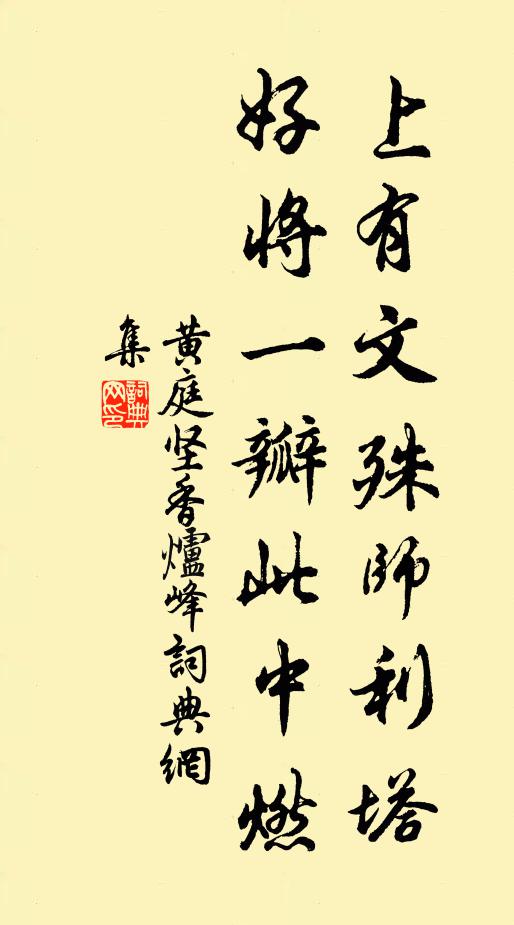 上有文殊師利塔
好將一瓣此中燃
黄庭坚香爐峰詞典網
集
詞典
网印